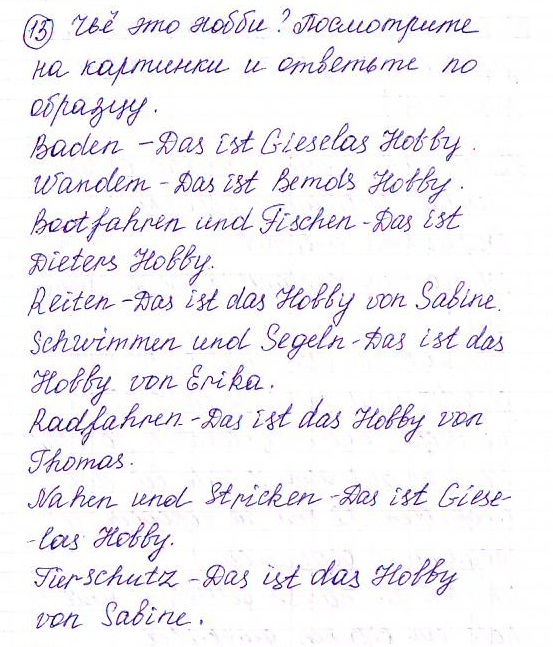 15) Чьё это хобби? Посмотрите
на картинки и ответьте по
образцу.
Baden - Das ist Gieselas Hobby.
Wandem - Das ist Bemds Hobby.
Bootfahren und Fischen - Das ist
Dieters Hobby.
Reiten - Das ist das Hobby von Sabine.
Schwimmen und Segeln - Das ist das
Hobby von Erika.
Radfahren - Das ist das Hobby von
Thomas.
Nahen und Stricken - Das ist Giese-
-las Hobby.
Tierschutz - Das ist das Hobby
von Sabine.